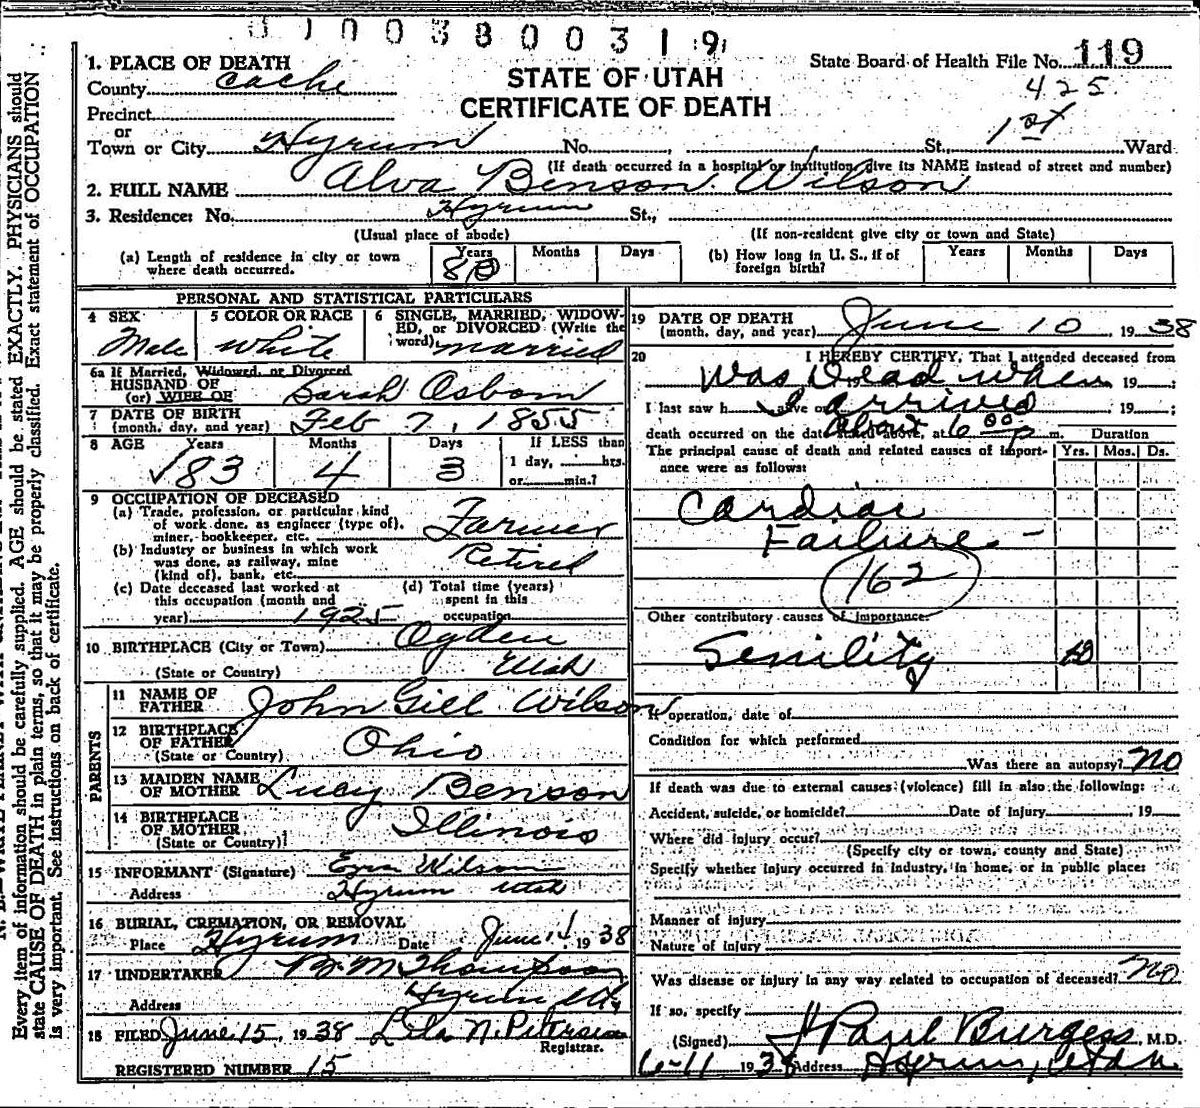 0100380031 9
1. PLACE OF DEATH
County Cache
STATE OF UTAH
CERTIFICATE OF DEATH
State Board of Health File No. 119
425
Precinct
or
Town or City Hyrum No. , St. 1st Ward
(If death occurred in a hospital or institution give its NAME instead of street and number)
2. FULL NAME Alva Benson Wilson
3. Residence: No. Hyrum St.,
(Usual place of abode) (If non-resident give city or town and State)
(a) Length of residence in city or town
where death occurred.
Years Months Days
80
(b) How long in U. S., if of
foreign birth?
Years Months Days
PERSONAL AND STATISTICAL PARTICULARS
4 SEX
Male
5 COLOR OR RACE
White
6 SINGLE, MARRIED, WIDOW-
ED, or DIVORCED (Write the
word) married
6a If Married, Widowed, or Divorced
HUSBAND OF
(or) WIFE OF Sarah Osborn
7 DATE OF BIRTH
(month, day, and year) Feb 7, 1855
8 AGE Years Months Days If LESS than
1 day, hrs.
or min.?
83 4 3
9 OCCUPATION OF DECEASED
(a) Trade, profession, or particular kind
of work done, as engineer (type of),
miner, bookkeeper, etc. Farmer
(b) Industry or business in which work
was done, as railway, mine
(kind of), bank, etc. Retired
(c) Date deceased last worked at
this occupation (month and
year) 1925
(d) Total time (years)
spent in this
occupation
10 BIRTHPLACE (City or Town) Ogden
(State or Country) Utah
PARENTS
11 NAME OF
FATHER John Gill Wilson
12 BIRTHPLACE
OF FATHER Ohio
(State or Country)
13 MAIDEN NAME
OF MOTHER Lucy Benson
14 BIRTHPLACE
OF MOTHER Illinois
(State or Country)
15 INFORMANT (Signature) Ezra Wilson
Address Hyrum Utah
16 BURIAL, CREMATION, OR REMOVAL
Place Hyrum Date June 14 1938
17 UNDERTAKER B. M. Thompson
Address Hyrum Utah
18 FILED June 15, 1938 Lela N. Peterson
Registrar.
REGISTERED NUMBER 15
19 DATE OF DEATH
(month, day, and year) June 10, 1938
20 I HEREBY CERTIFY, That I attended deceased from
Was Dead when 19 ;
I last saw h alive on I arrived, 19 ;
death occurred on the date stated above, at About 6 00 p m. Duration
The principal cause of death and related causes of import-
ance were as follows:
Yrs. Mos. Ds.
Cardiac
Failure -
162
Other contributory causes of importance:
Senility
If operation, date of
Condition for which performed
Was there an autopsy? No
If death was due to external causes (violence) fill in also the following:
Accident, suicide, or homicide? Date of injury , 19
Where did injury occur?
(Specify city or town, county and State)
Specify whether injury occurred in industry, in home, or in public place:
Manner of injury
Nature of injury
Was disease or injury in any way related to occupation of deceased? No
If so, specify
(Signed) J Paul Burgess, M.D.
6-11 1938 Address Hyrum, Utah
Every item of information should be carefully supplied. AGE should be stated EXACTLY. PHYSICIANS should
state CAUSE OF DEATH in plain terms, so that it may be properly classified. Exact statement of OCCUPATION
is very important. See instructions on back of certificate.